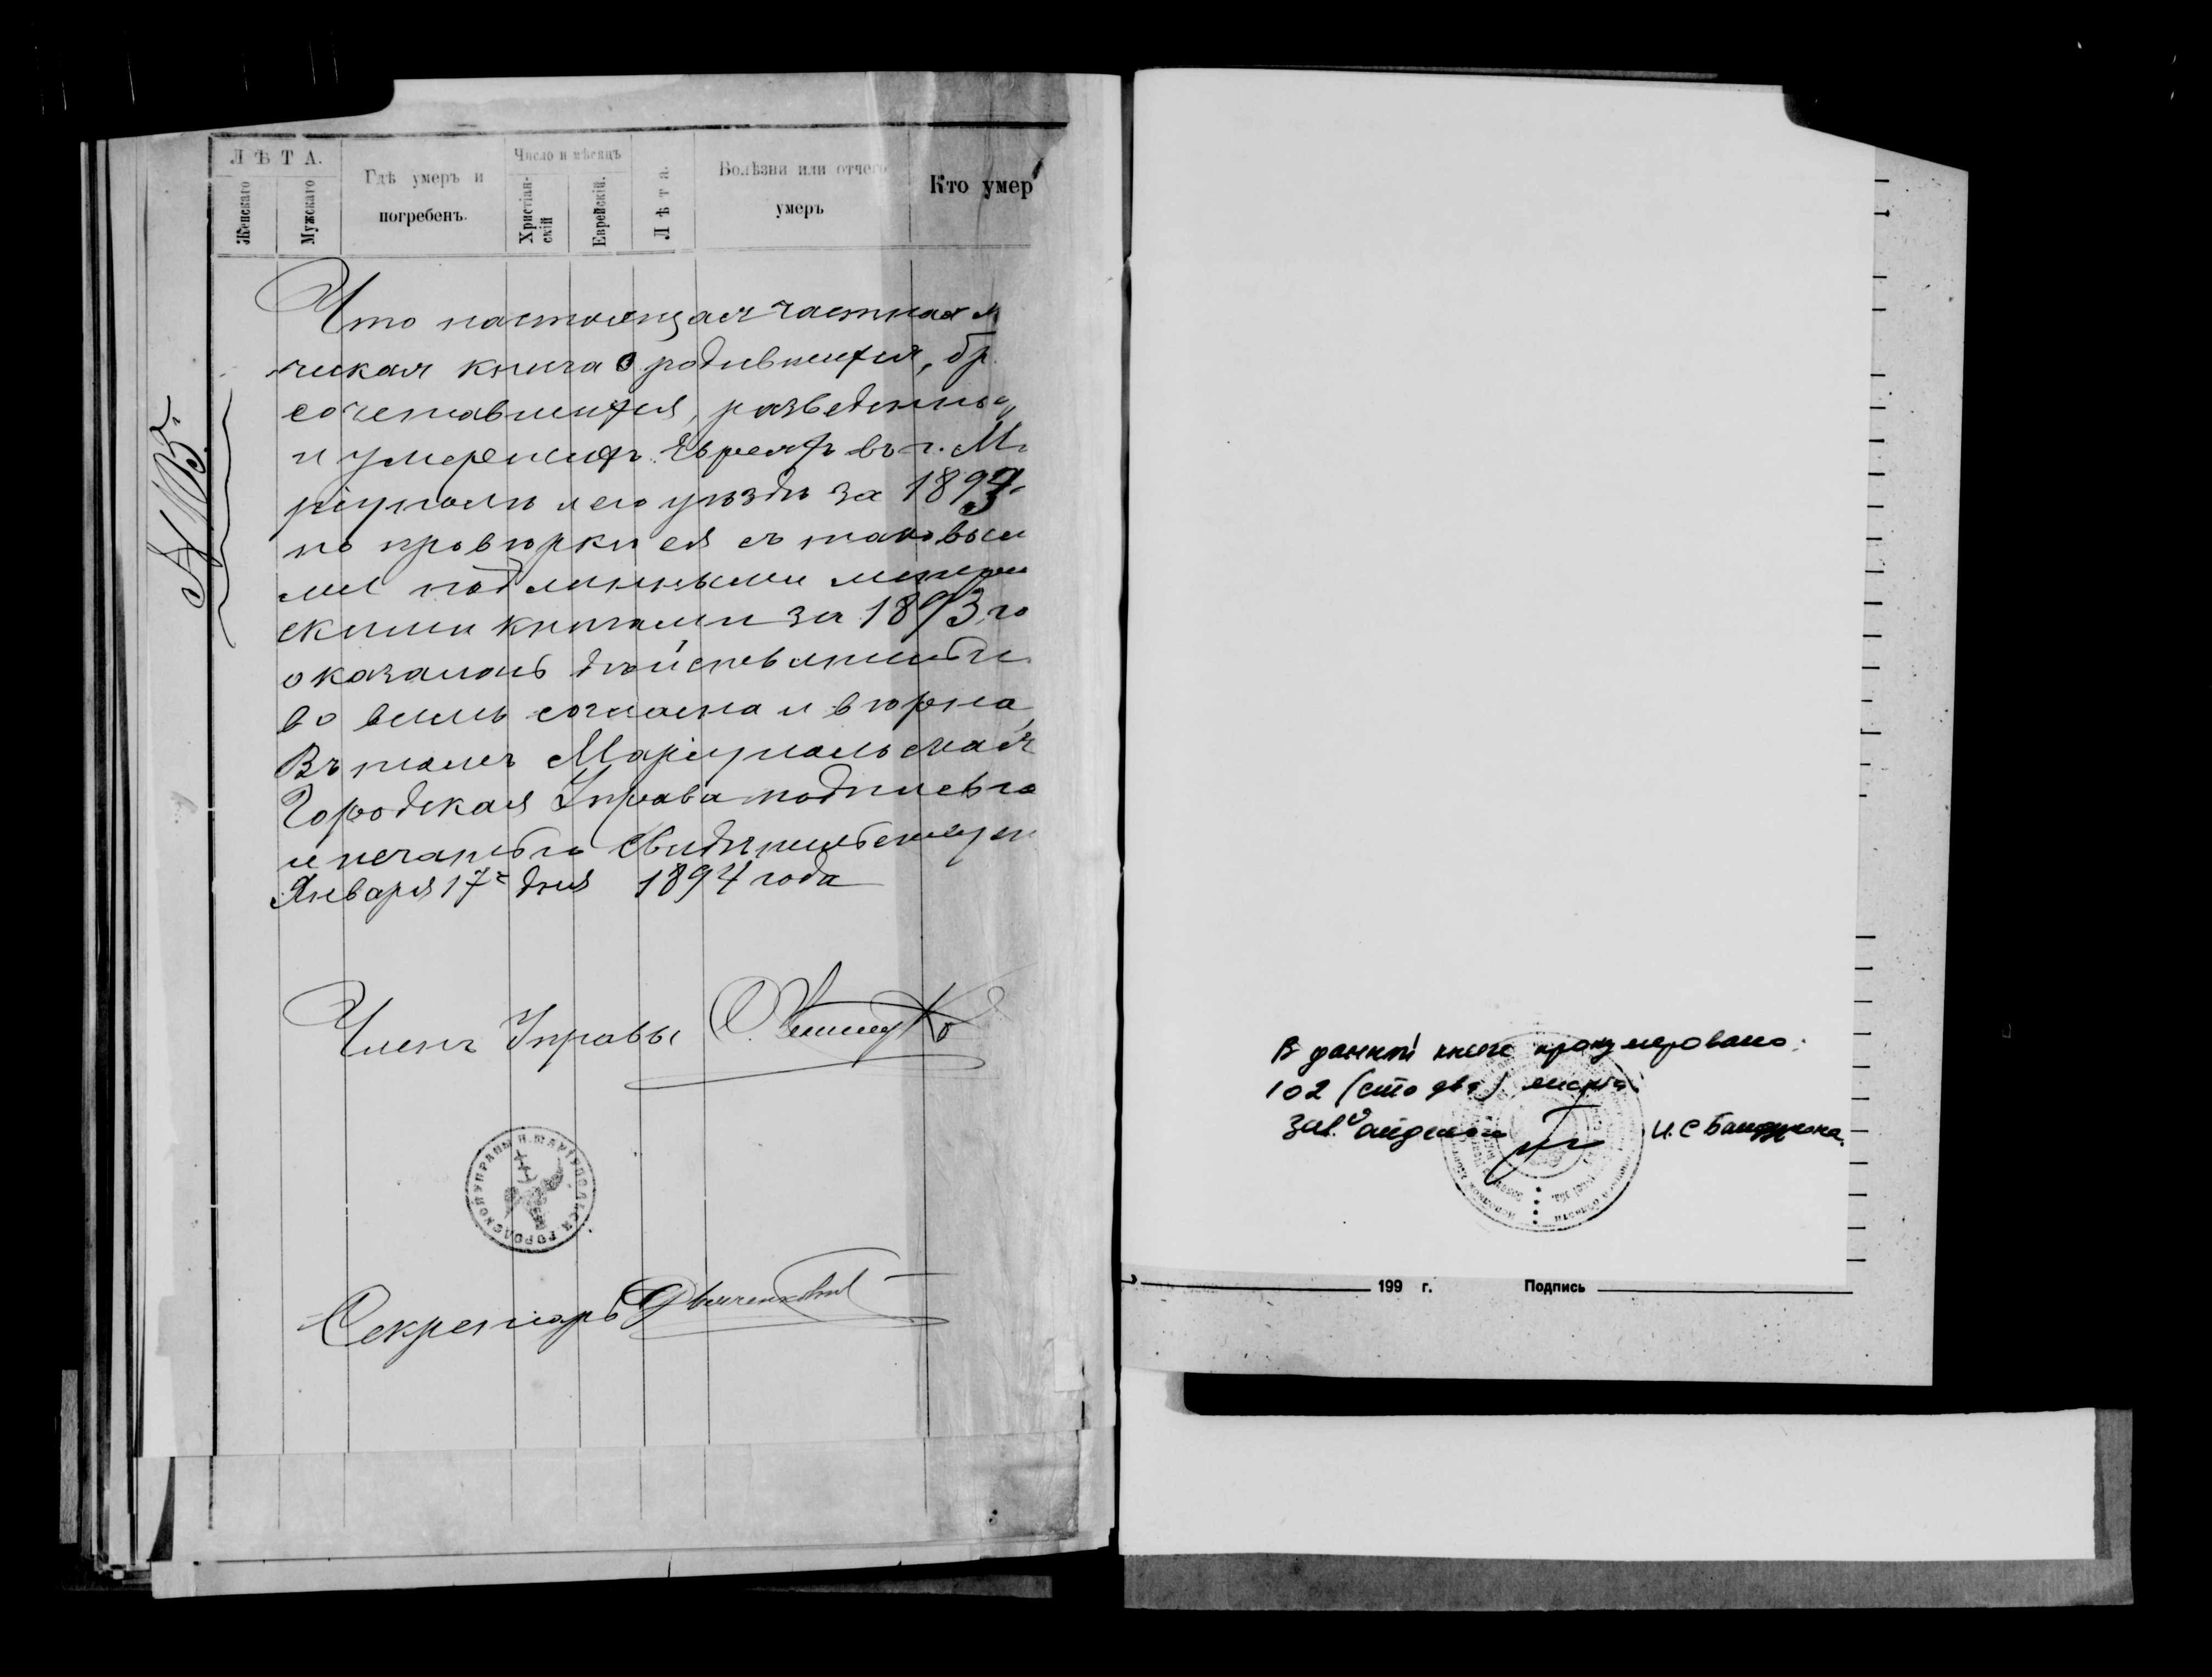 ЛѢТА.
Женскаго
Мужскаго
Гдѣ умеръ и
погребенъ.
Число и мѣсяцъ
Христіан-
скій
Еврейскій.
Лѣта.
Болѣзни или отчего
умеръ
Кто умер
Что настоящая частная м
ческая книга о родившихся, бр
сочетавшихся, разведенны
и умершихъ Евреяхъ въ г. Ма
ріуполѣ и его уѣздѣ за 1893
по провѣрки ея съ таковы
ми подлинными метриче
скими книгами за 1893 го
оказалось дѣйствительн
во всемъ согласна и вѣрна,
Въ томъ Маріупольская
Городская Управа подписью
и печатью свидѣтельствуетъ
Января 17 дня 1894 года
Членъ Управы
ГОРОДСКОЙ УПРАВЫ
Секретарь
В данной книге пронумеровано:
102 (сто два) листа
Зав. отделом
199 г.
Подпись